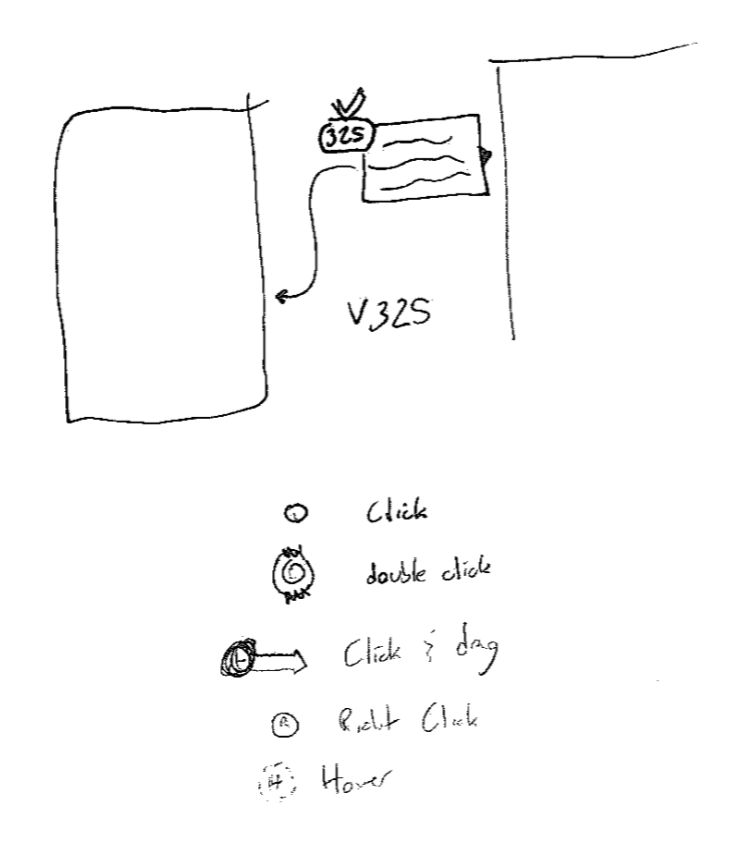 325
V325
Click
double click
L
Click & drag
R
Right Click
H
Hover